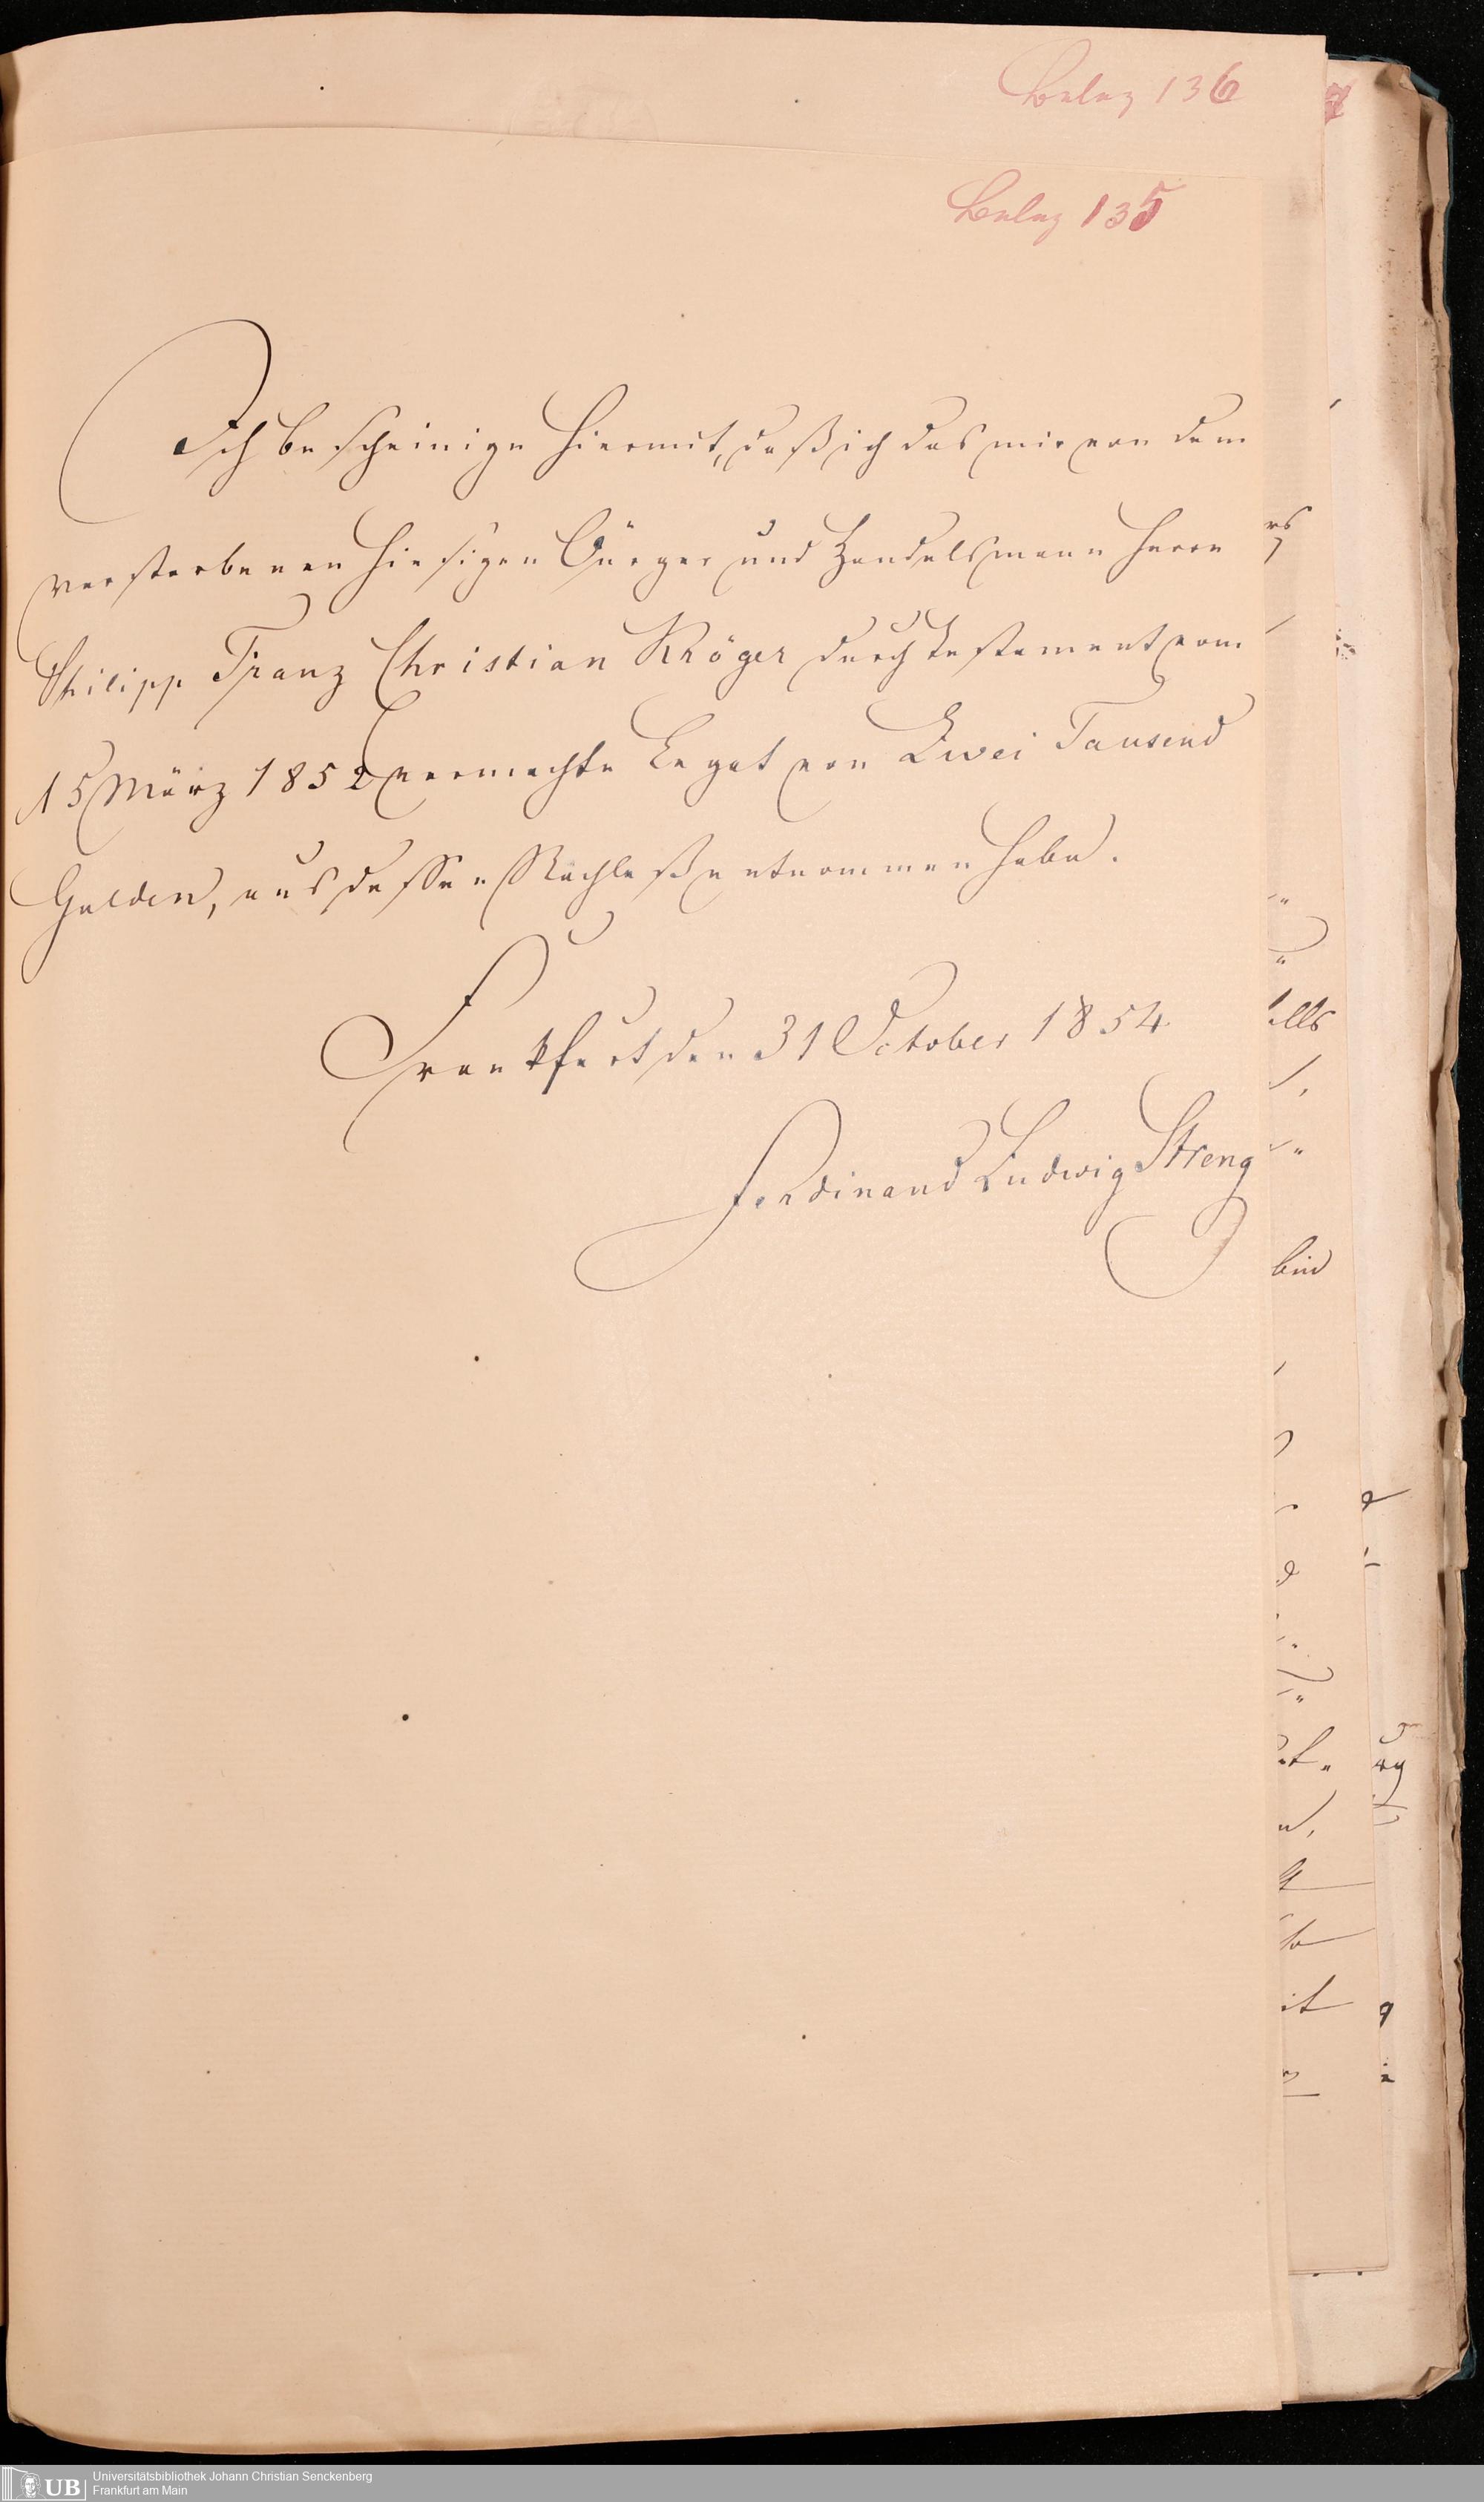 Beleg 136
Beleg 135
Ich bescheinige hiermit, daß ich das mir von dem
verstorbenen hiesigen Bürger und Handelsmann Herrn
Philipp Franz Christian Kröger durch Testament vom
15 März 1852 vermachte Legat von Zwei Tausend
Gulden, aus dessen Nachlaß entnommen habe.
Frankfurt den 31 October 1854
Ferdinand Ludwig Streng
UB Universitätsbibliothek Johann Christian Senckenberg
Frankfurt am Main